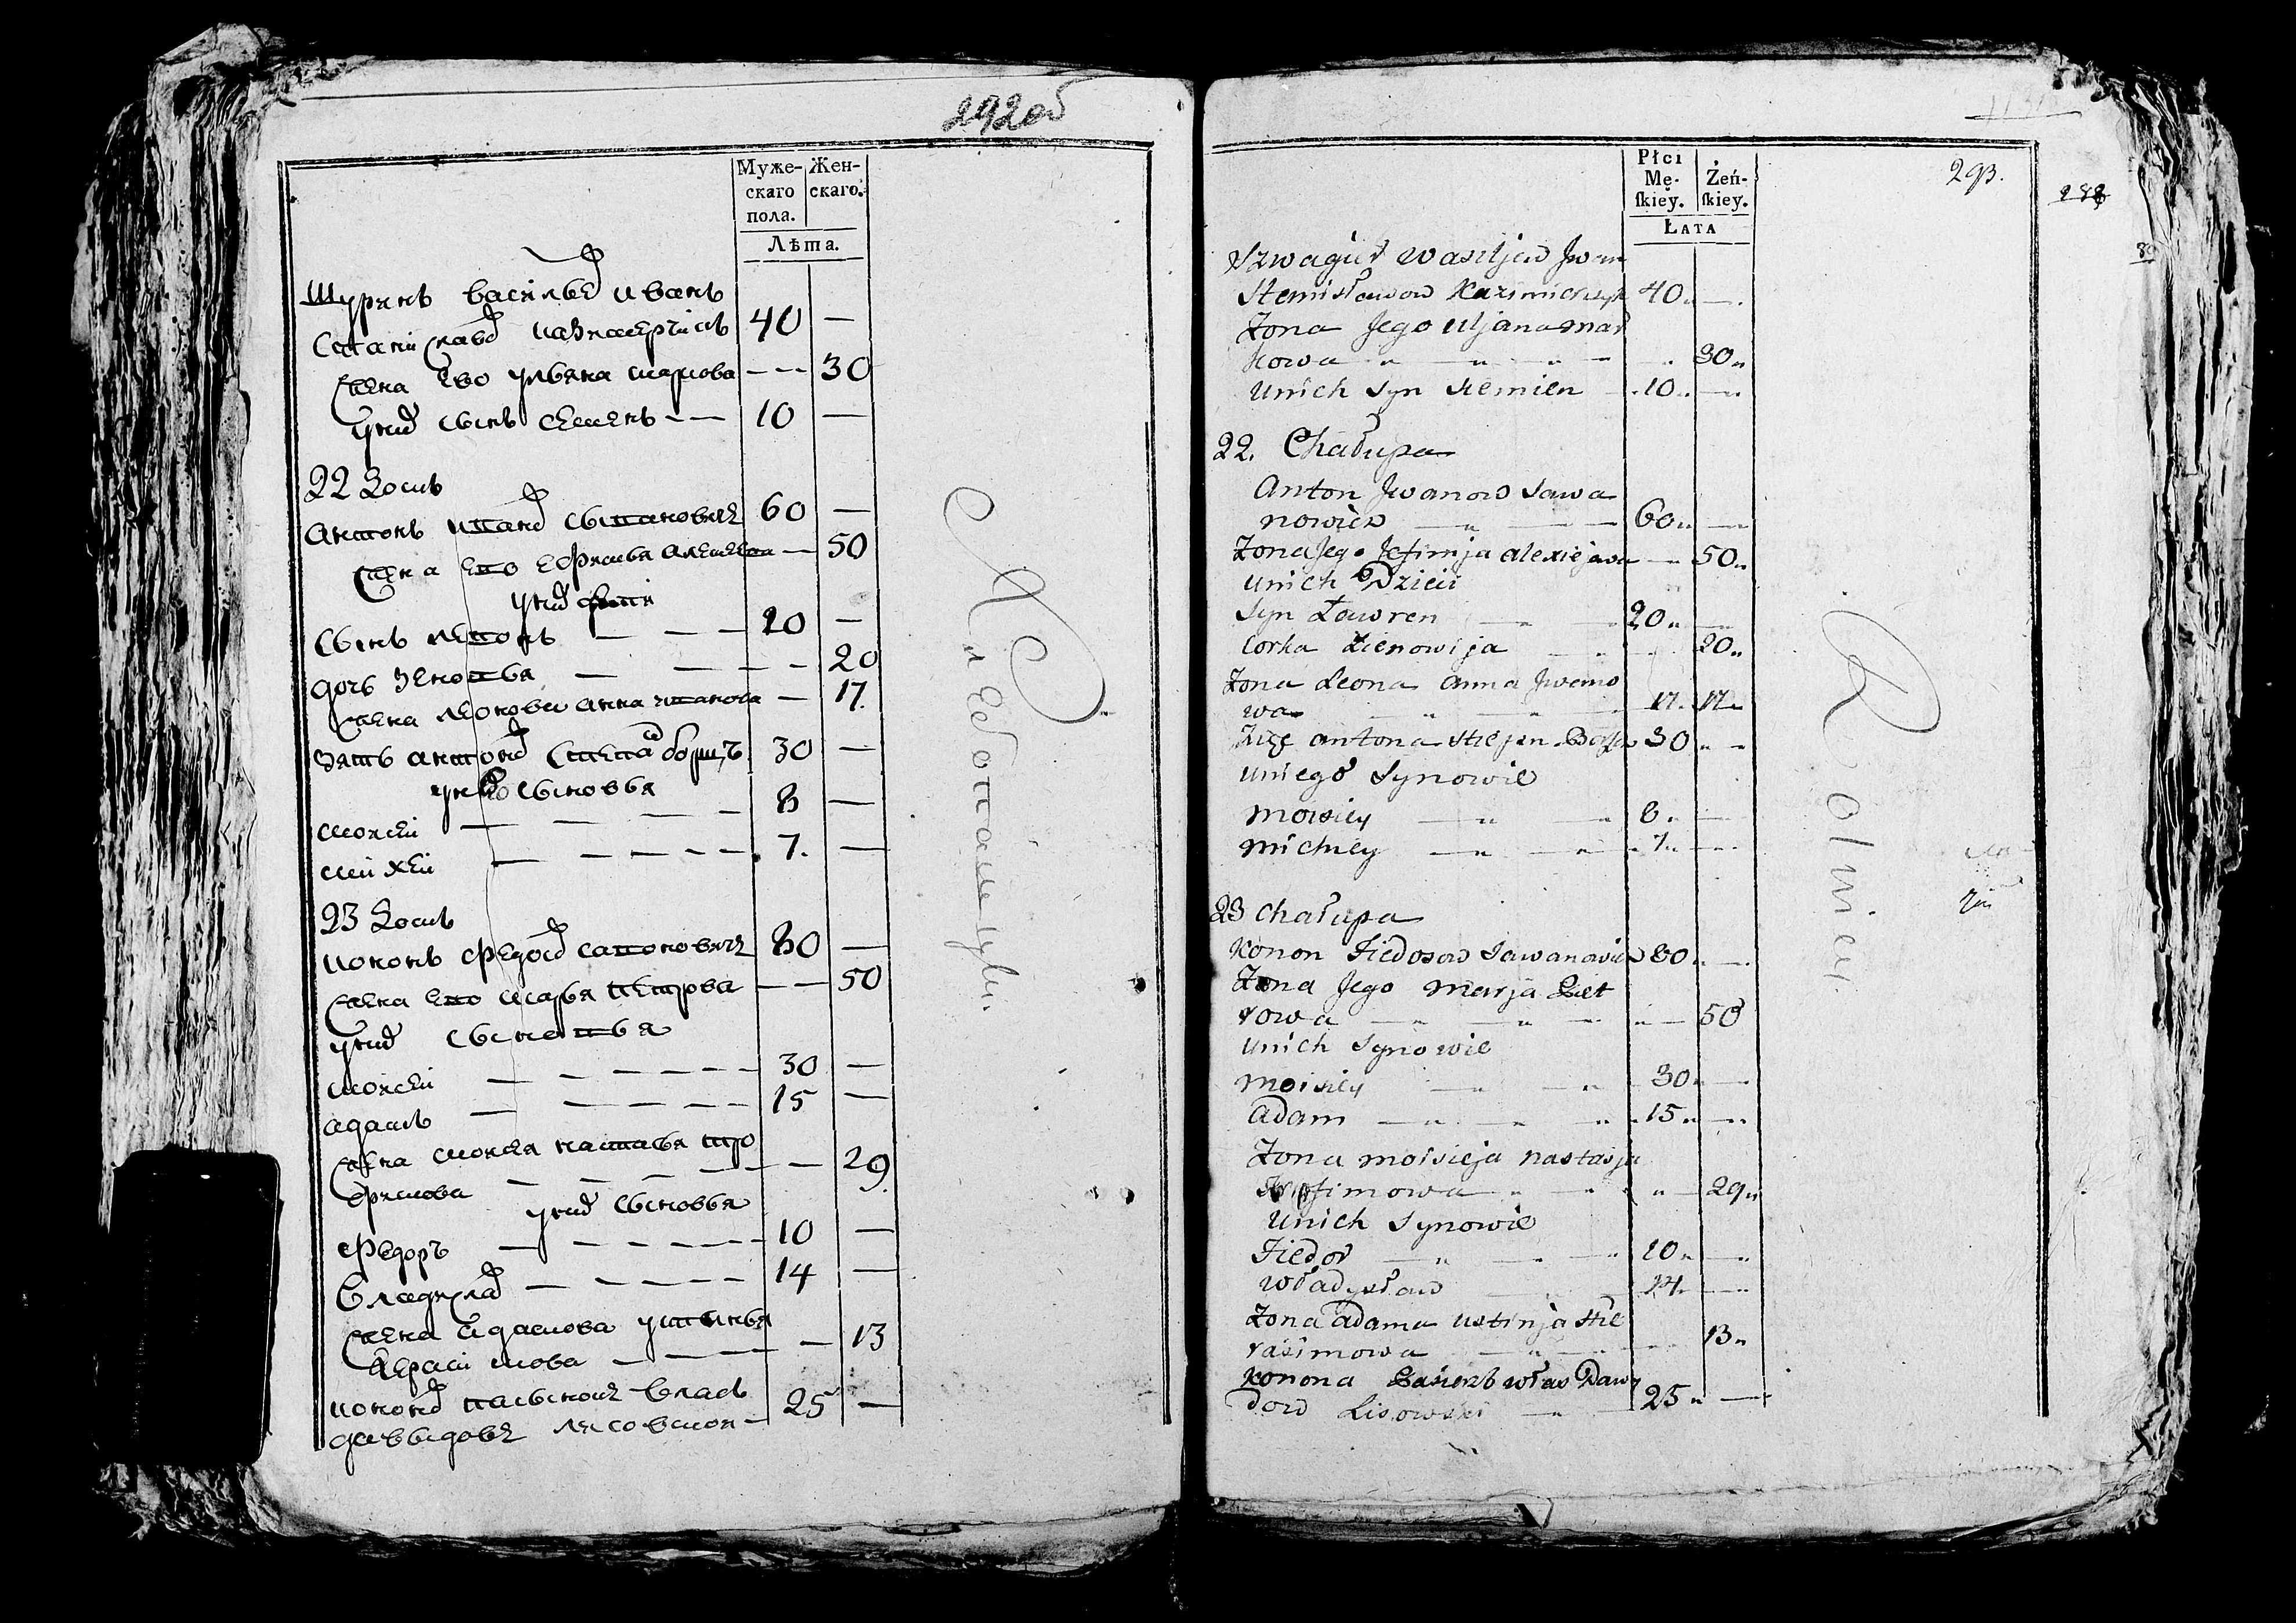 292 об
Муже-
скаго
пола.
Жен-
скаго.
Лѣта.
Шуринъ васильевъ иванъ
Станиславовъ казимерчикъ 40 —
жена Ево ульяна маркова — — 30
унихъ сынъ семенъ — — 10 —
22 Домъ
антонъ ивановъ 60 —
жена ево ефимья алексеева — 50
унихъ дети
Сынъ левонъ — — — 20 —
дочь зеновья — — — — 20
жена леонова анна иванова — 17.
зять антоновъ степанъ 30 —
унево сыновья
моисей — — — — 8 —
михей — — — — — 7. —
23 Домъ
кононъ федосовъ савоновичъ 80 —
жена ево марья петрова — — 50
унихъ сыновья
моисей — — — — — — 30 —
адамъ — — — — — — 15 —
жена моисея настасья тро
фимова — — — — — — 29.
унихъ сыновья
федоръ — — — — — — 10 —
владиславъ — — — — — 14 —
жена адамова устинья
Герасимова — — — — — 13
кононовъ пасынокъ власъ
давыдовъ лисовскои — 25 —
Хлебопашцы.
293.
Płci
Mę-
ſkiey.
Żeń-
ſkiey.
Łata
Szwagier Wasiljew Jwan
Stemisławow Kazimierczyk 40 „ —
Żona Jego uljana mar
kowa „ — „ — „ — „ 30 „
unich syn Siemien — „ 10 „ —
22. Chałupa
Anton Jwanow Sawa
nowicz — „ — — 60 „ —
Żona Jego Jefimja alexiejewa — 50 „
unich Dzieci
Syn Ławren — „ — 20 „ —
Corka Zienowija — „ — 20 „
Żona Leona Anna Jwano
wa — „ — — 17 „ 17 „
Zięć antona Stiepan 30 „ „
uniego Synowie
Moisiey — „ — „ 8 „ —
Michiey — „ — „ 7 „ —
23 Chałupa
Konon Fiedosow Sawanowicz 80 „ —
Żona Jego Marja Piet
rowa — „ — „ — „ — 50
unich Synowie
Moisiey — „ — „ 30 „ —
Adam — „ — „ — „ 15 „ —
Żona moisieja nastasja
Trofimowa — „ — „ — 29 „
unich Synowie
Fiedor — „ — — „ 10 „ —
Władysław — 14 „ —
Żona adama ustinja Hie
rasimowa — „ — 13 „
Konona Pasierzb włas Dawy
dow Lisowski — „ — 25 „ —
Rolnicy